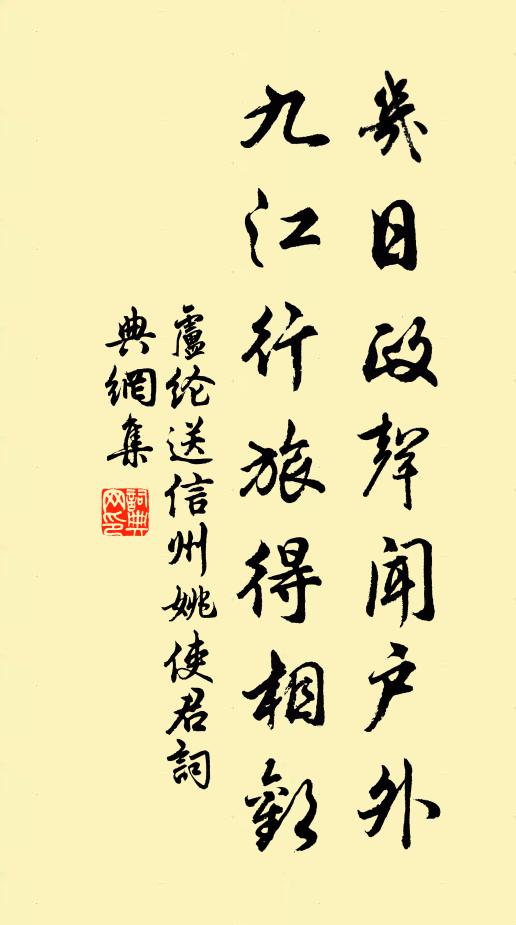 幾日政聲聞户外
九江行旅得相歡
盧綸送信州姚使君詞
典網集
詞典网印